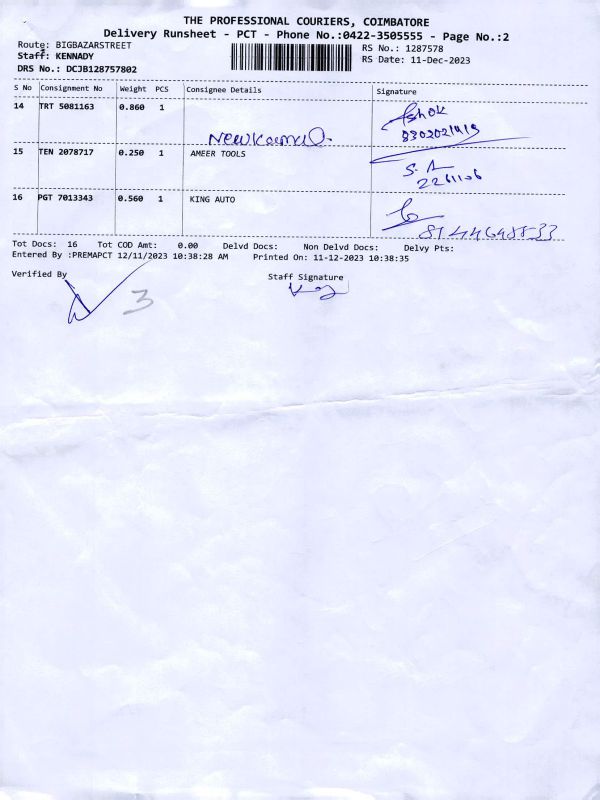 THE PROFESSIONAL COURIERS, COIMBATORE
Delivery Runsheet - PCT - Phone No.:0422-3505555 - Page No.:2
Route: BIGBAZARSTREET
RS No.: 1287578
Staff: KENNADY
RS Date: 11-Dec-2023
DRS No.: DCJB128757802
S No Consignment No Weight PCS Consignee Details Signature
14 TRT 5081163 0.860 1
Ashok
15 TEN 2078717 0.250 1 AMEER TOOLS
S. A
2261106
16 PGT 7013343 0.560 1 KING AUTO
Tot Docs: 16 Tot COD Amt: 0.00 Delvd Docs: Non Delvd Docs: Delvy Pts:
Entered By :PREMAPCT 12/11/2023 10:38:28 AM Printed On: 11-12-2023 10:38:35
Verified By
Staff Signature
3